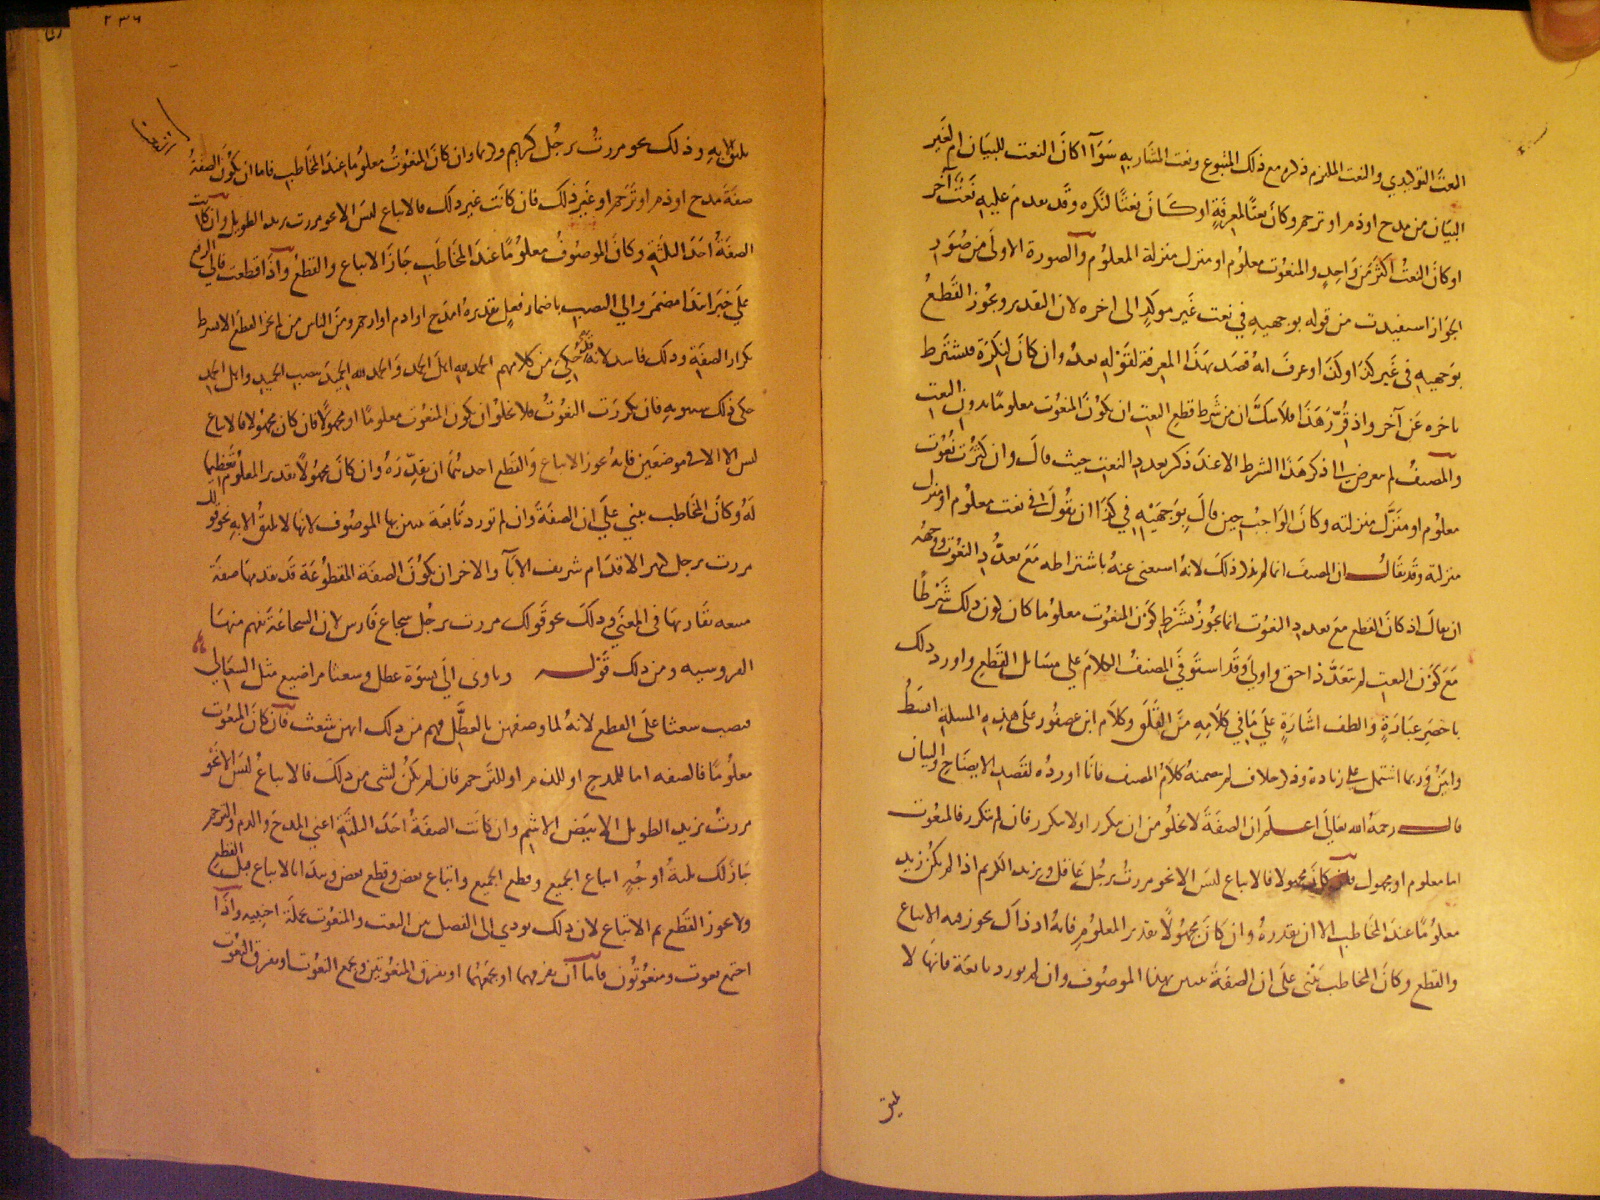 النعت التوكيدي والنعت الملتزم ذكره مع ذلك المتبوع ونعت المشار به سوآا اكان النعت للبيان ام لغير
البيان من مدح او ذم او ترحم وكان نعتا لمعرفة او كان نعتا لنكره وقد تقدم عليه نعت آخر
او كان النعت اكثر من واحد والمنعوت معلوم او منزل منزلة المعلوم والصورة الاولى من صور
الجواز استفيدت من قوله بوجهيه في نعت غير موكد الى اخره لان التقدير ويجوز القطع
بوجهيه في غير كذا وكذا وعرف انه قصد بهذا المعرفة لقوله بعد وان كان لنكرة فيشترط
تاخره عن آخر واذ قرر هذا فلا شك ان من شرط قطع النعت ان يكون المنعوت معلوما بدون النعت
والمصنف لم يعرض الى ذكر هذا الشرط الا عند ذكر تعدد النعت حيث قال وان كثرت نعوت
معلوم او منزل منزلته وكان الواجب حين قال بوجهيه في كذا ان يقول في نعت معلوم او منزل
منزلته وقد يقال ان المصنف انما لم يذكر ذلك لانه استغنى عنه باشتراطه مع تعدد النعوت ووجهه
ان يقال اذ كان القطع مع تعدد النعوت انما يجوز بشرط كون المنعوت معلوما كان لون ذلك شرطا
مع كون النعت لم يتعدد احق واولى وقد استوفى المصنف الكلام على مسائل القطع واورد ذلك
باخصر عبارة والطف اشارة على ما في كلامه من القلق وكلام ابن عصفور على هذه المسلة ابسط
وابين وربما اشتمل على زيادة وذكر خلاف لم يتضمنه كلام المصنف فانا اورده لقصد الايضاح والبيان
قال رحمه الله تعالى اعلم ان الصفة لا تخلو من ان تتكرر او لا تتكرر فان لم تتكرر فالمنعوت
اما معلوم او مجهول فان كان مجهولا فالاتباع ليس الا نحو مررت برجل عاقل وبزيد الكريم اذا لم يكن زيد
معلوما عند المخاطب الا ان تقدره وان كان مجهولا تقدير المعلوم فانه اذ ذاك يجوز فيه الاتباع
والقطع وكان المخاطب يبنى على ان الصفة يبين بهذا الموصوف وان لم يورد تابعة فانها لا
تليق
٢٣٦
تليق الا به وذلك نحو مررت برجل كريم وربما وان كان المنعوت معلوما عند المخاطب فاما ان تكون الصفة
صفة مدح او ذم او ترحم او غير ذلك فان كانت غير ذلك فالاتباع ليس الا نحو مررت بزيد الطويل وان كانت
الصفة احد الثلثة وكان الموصوف معلوما عند المخاطب جاز الاتباع والقطع وآذا قطعت فالى الرفع
على خبر ابتدا مضمر والى النصب باضمار فعل تقديره امدح او اذم او ارحم ومن الناس من لم يجز القطع الا بشرط
تكرار الصفة وذلك فاسد لانه قد حكي من كلامهم الحمد لله اهل الحمد والحمد لله الحميد بنصب الحميد واهل الحمد
حكى ذلك سيبويه فان تكررت النعوت فلا تخلو ان يكون المنعوت معلوما او مجهولا فان كان مجهولا فالاتباع
ليس الا الا في موضعين فانه يجوز الاتباع والقطع احدهما ان تقدره وان كان مجهولا تقدير المعلوم تعظيما
له وكان المخاطب بيني على ان الصفة وان لم تورد تابعة يبين بها الموصوف لانها لا تليق الا به نحو قولك
مررت برجل طاهر الاقدام شريف الآبآ والاخر ان تكون الصفة المقطوعة قد تقدمها صفة
متبعة تقاربها في المعنى وذلك نحو قولك مررت برجل شجاع فارس لان الشجاعة تفهم منها
الفروسيه ومن ذلك قوله وياوى الى نسوة عطل وشعثا مراضيع مثل السعالى
فنصب شعثا على القطع لانه لما وصفهن بالعطل فهم من ذلك انهن شعث فان كان المنعوت
معلوما فالصفه اما للمدح او للذم او للترحم فان لم يكن لشي من ذلك فالاتباع ليس الا نحو
مررت بزيد الطويل الابيض الاشم وان كانت الصفة احد الثلثة اعنى المدح والذم والترحم
جاز لك ثلثة اوجه اتباع الجميع وقطع الجميع واتباع بعض وقطع بعض وتبدا بالاتباع قبل القطع
ولا يجوز القطع ثم الاتباع لان ذلك يودي الى الفصل بين النعت والمنعوت بجملة اجنبيه وآذا
اجتمع نعوت ومنعوتون فاما آن تفرقهما او تجمعهما او تفرق المنعوتين وتجمع النعوت او تفرق النعوت